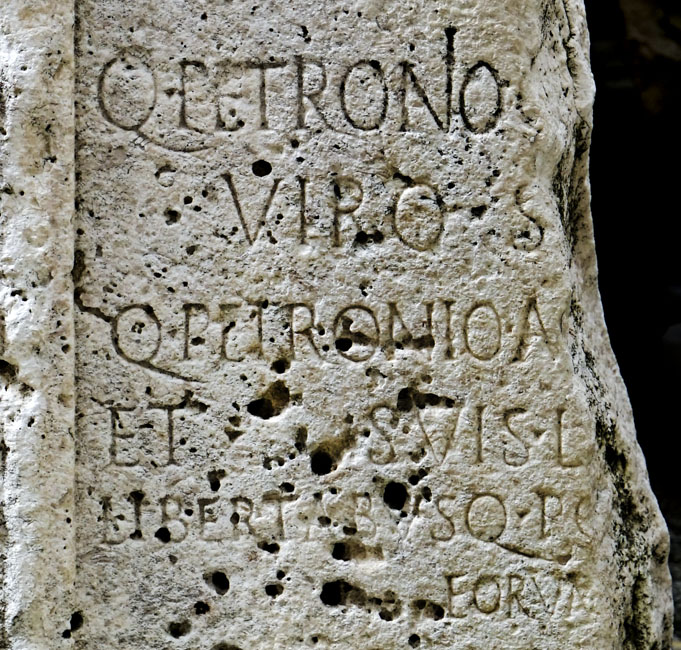 Q·PETRONIO
VIRO S
Q·PETRONIO A
ET SVIS·L
LIBERTABVSQ·P
EORVM